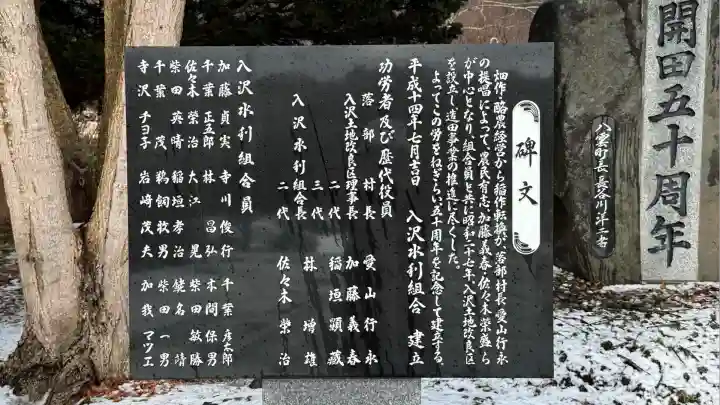 碑文
畑作、酪農経営から稲作転換が、落部村長愛山行永
の提唱によって、農民有志、加藤義春、佐々木栄盛ら
が中心となり、組合員と共に昭和二十七年、入沢土地改良区
を設立し造田事業の推進に尽くした。
よってこの労をねぎらい、五十周年を記念して建立する。
平成十四年七月吉日 入沢水利組合 建立
功労者及び歴代役員
落部村長 愛山行永
入沢土地改良区理事長 加藤義春
二代 稲垣顕蔵
三代 林増雄
入沢水利組合長
二代 佐々木榮治
入沢水利組合員
加藤貞実 寺川俊行 千葉彦太郎
千葉正五郎 林昌弘 本間保男
佐々木榮治 大江晃 柴田敏勝
柴田英晴 稲垣孝治 熊名靖
千葉茂 鵜飼牧男 柴田一男
寺沢チヨ子 岩崎茂夫 加我マツエ
開田五十周年
八雲町長 長谷川洋二書